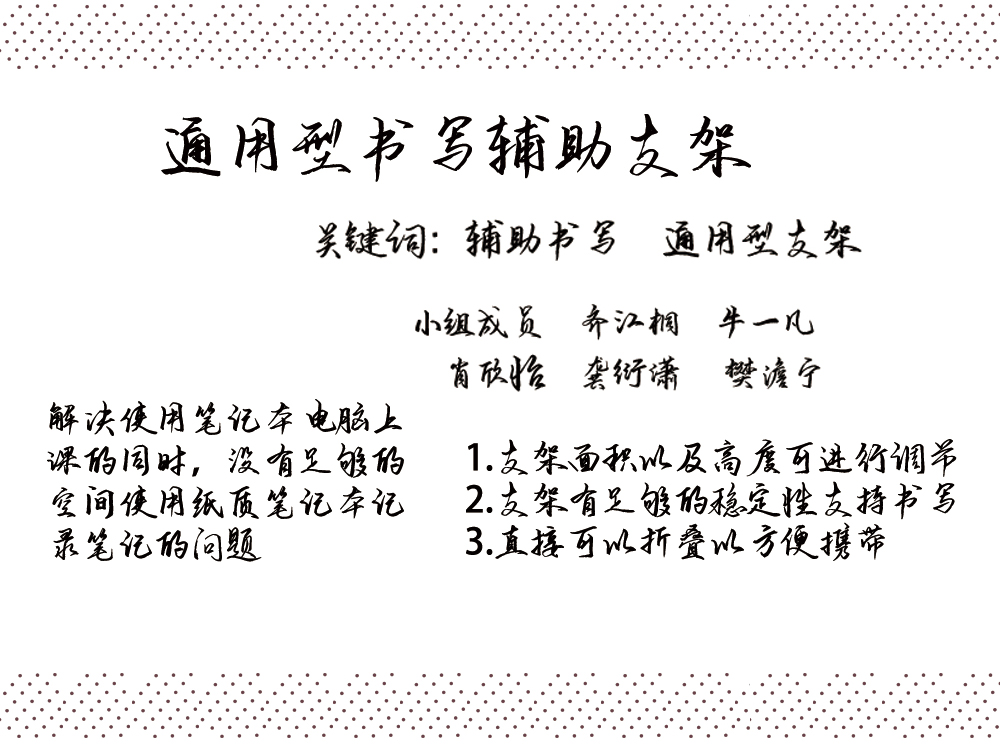 通用型书写辅助支架
关键词：辅助书写 通用型支架
小组成员 齐江桐 牛一凡
肖欣怡 龚衍潇 樊澹宁
解决使用笔记本电脑上
课的同时，没有足够的
空间使用纸质笔记本记
录笔记的问题
1.支架面积以及高度可进行调节
2.支架有足够的稳定性支持书写
3.直接可以折叠以方便携带